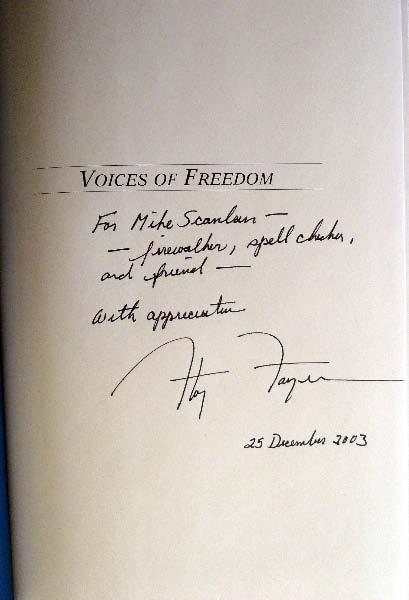 VOICES OF FREEDOM
For Mike Scanlan —
— firewalker, spell checker,
and friend —
With appreciation
25 December 2003